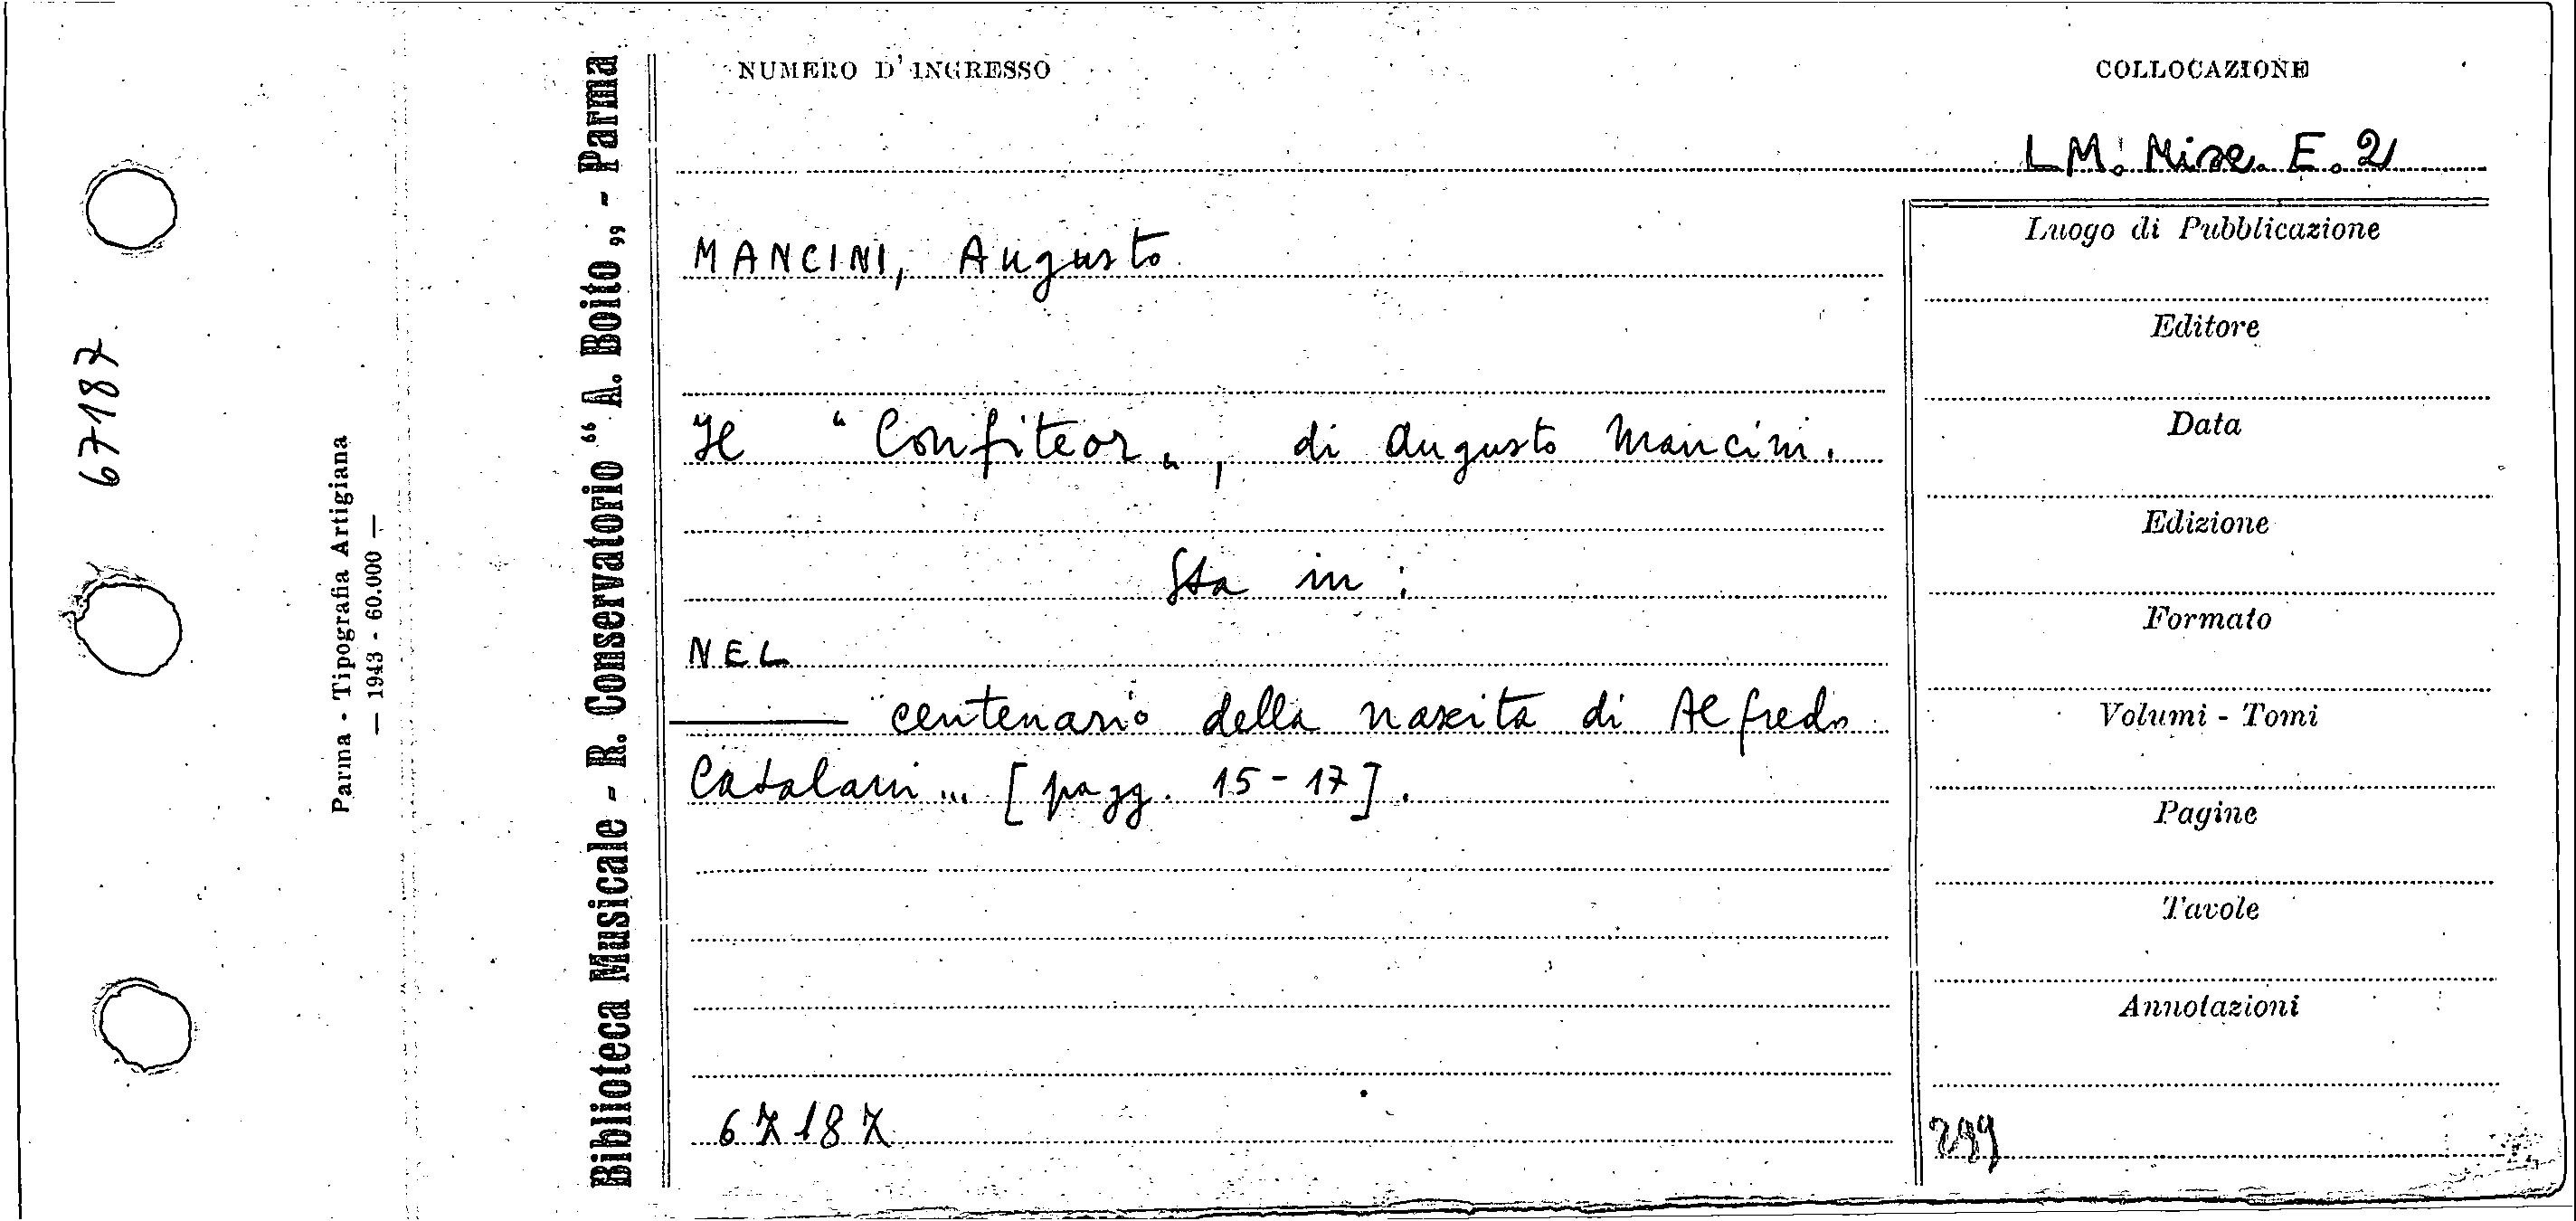 67187
Parma - Tipografia Artigiana
— 1943 - 60.000 —
Biblioteca Musicale - R. Conservatorio “ A. Boito „ - Parma
NUMERO D'INGRESSO
COLLOCAZIONE
LM. Misc. E. 2
MANCINI, Augusto
Il “ Confiteor „, di Augusto Mancini.
Sta in :
NEL
——— centenario della nascita di Alfredo
Catalani ... [pagg. 15-17].
67187
Luogo di Pubblicazione
Editore
Data
Edizione
Formato
Volumi - Tomi
Pagine
Tavole
Annotazioni